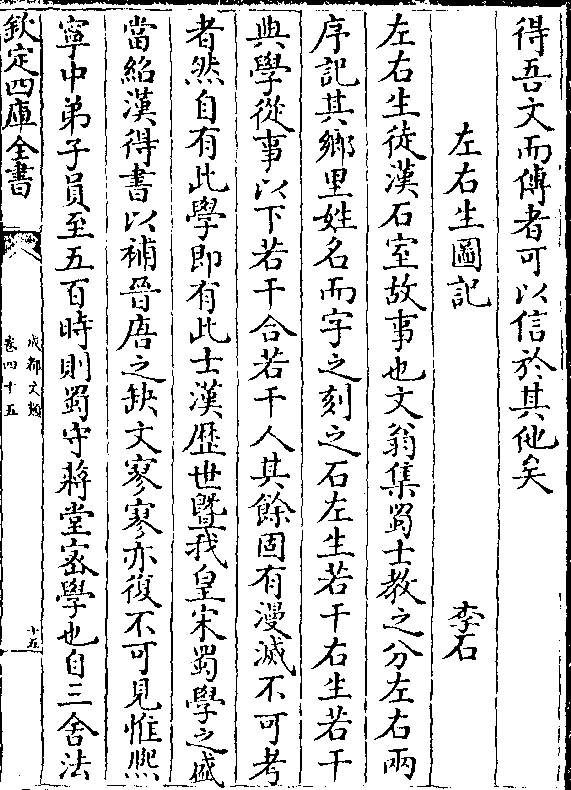 得吾文而傳者可以信於其他矣
左右生圖記
李石
左右生徒漢石室故事也文翁集蜀士教之分左右兩
序記其鄉里姓名而字之刻之石左生若干右生若干
典學從事以下若干合若干人其餘固有漫滅不可考
者然自有此學即有此士漢歴世暨我皇宋蜀學之盛
當紹漢得書以補晉唐之缺文寥寥亦復不可見惟熈
寧中弟子員至五百時則蜀守蔣堂宻學也自三舍法
欽定四庫全書
成都文類
卷四十五
十五